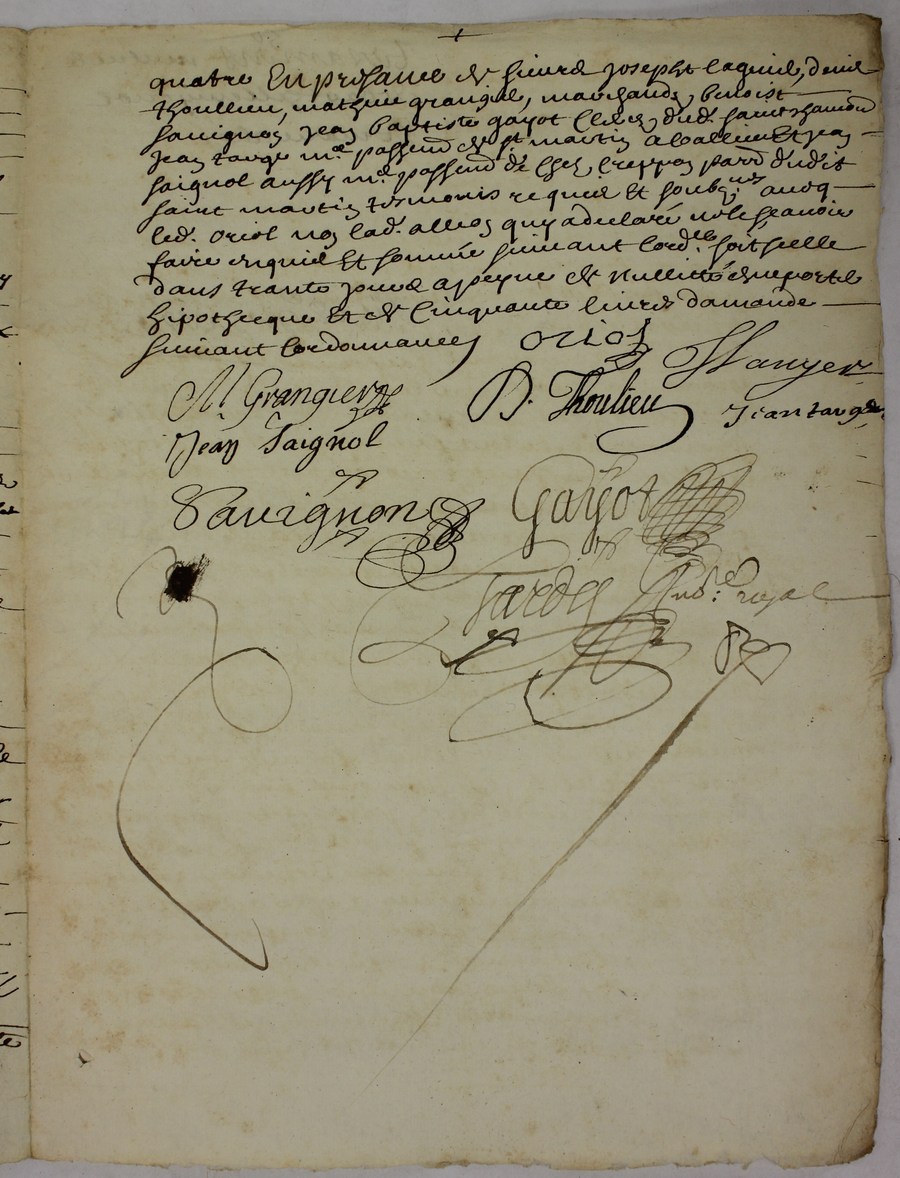 quatre En presance de sieurs Joseph laquiel, denis
thoullieu, mathieu grangier, marchands, benoist
sauvignon Jean baptiste gayot Clercs, dud. saint chamond
Jean targe m.e passem.r de s.t martin a Coallieu Et Jean
saignol aussy m.e passem.r de Crappon par.se dudit
saint martin tesmoins requis Et soubz.nes avecq
led. oriol non lad. alleon quy a declaré ne le sçavoir
faire enquise Et sommée suivant l'ord. soit scelle
dans trante jours a peyne de Nullitté de ne porter
hipothecque Et de Cinquante livres d'amande
suivant l'ordonnance oriol
M Grangier D. Thoulieu Jean targe
Jean Saignol
Sauvignon Gayot
Tardy no.re royal